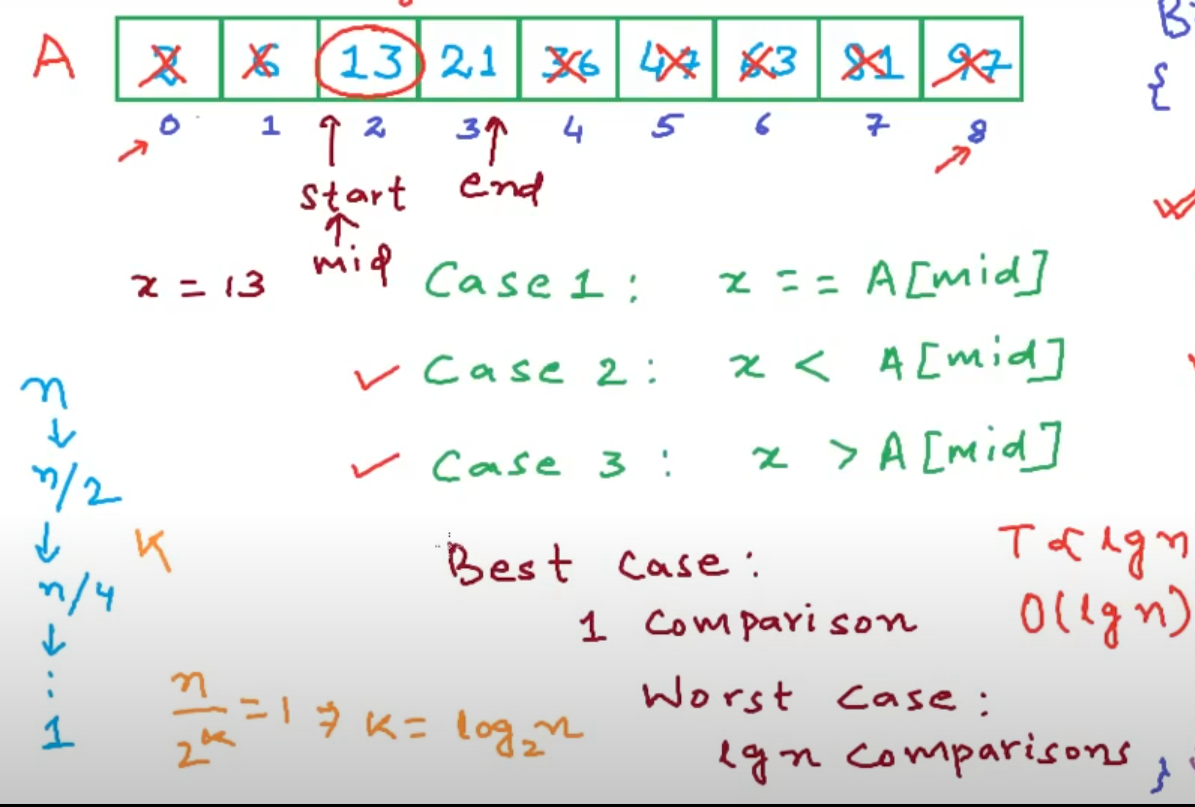 A 2 6 13 21 36 47 63 81 97
0 1 2 3 4 5 6 7 8
start end
mid
x = 13
Case 1 : x == A[mid]
Case 2 : x < A[mid]
Case 3 : x > A[mid]
n
n/2
n/4
:
1
K
n/2^k = 1 ⇒ K = log₂n
Best case :
1 comparison
Worst case :
lgn comparisons
T ∝ lgn
O(lgn)
{
}